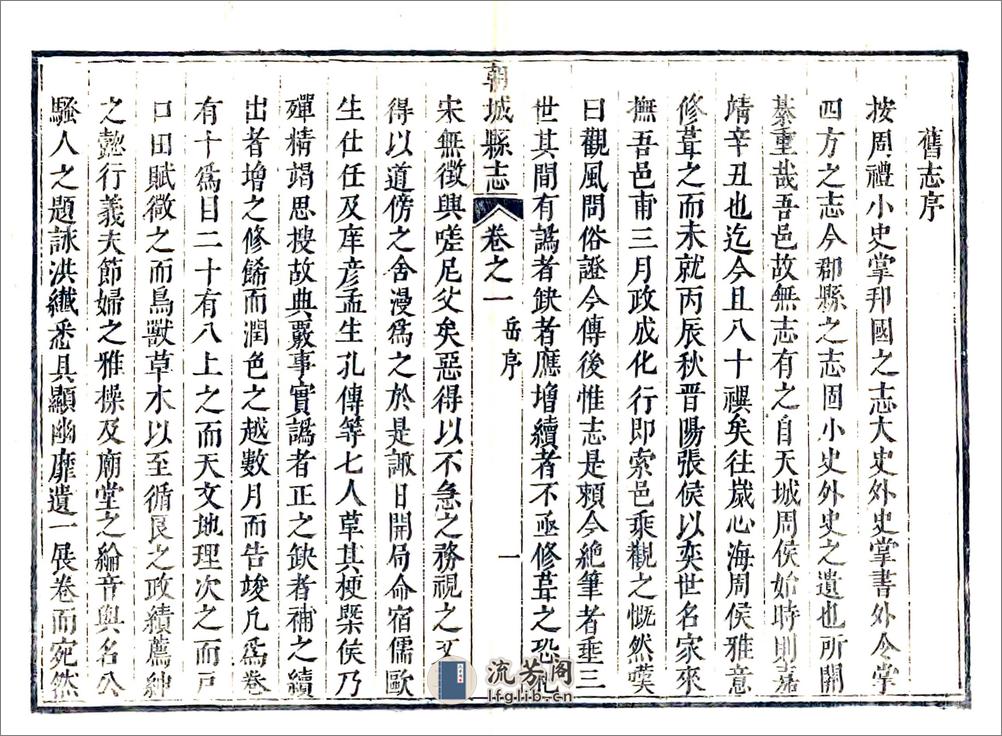 舊志序
按周禮小史掌邦國之志大史外史掌書外令掌
四方之志今郡縣之志固小史外史之遺也所關
綦重哉吾邑故無志有之自天城周侯始時則嘉
靖辛丑也迄今且八十禩矣往歲心海周侯雅意
修葺之而未就丙辰秋晋陽張侯以奕世名家來
撫吾邑甫三月政成化行即索邑乘觀之慨然嘆
曰觀風問俗證今傳後惟志是賴今絶筆者垂三
世其間有譌者缺者應增續者不亟修葺之恐
朝城縣志 卷之一 岳序 一
宋無徵與嗟尼父矣惡得以不急之務視之
得以道傍之舍漫爲之於是諏日開局命宿儒歐
生仕任及庠彦孟生孔傳等七人草其梗槩侯乃
殫精竭思搜故典覈事實譌者正之缺者補之續
出者增之修餙而潤色之越數月而告竣凡爲卷
有十爲目二十有八上之而天文地理次之而戸
口田賦微之而鳥獸草木以至循良之政績薦紳
之懿行義夫節婦之雅操及廟堂之綸音與名公
騷人之題詠洪纎悉具顯幽靡遺一展卷而宛然
流芳阁
lfglib.cn